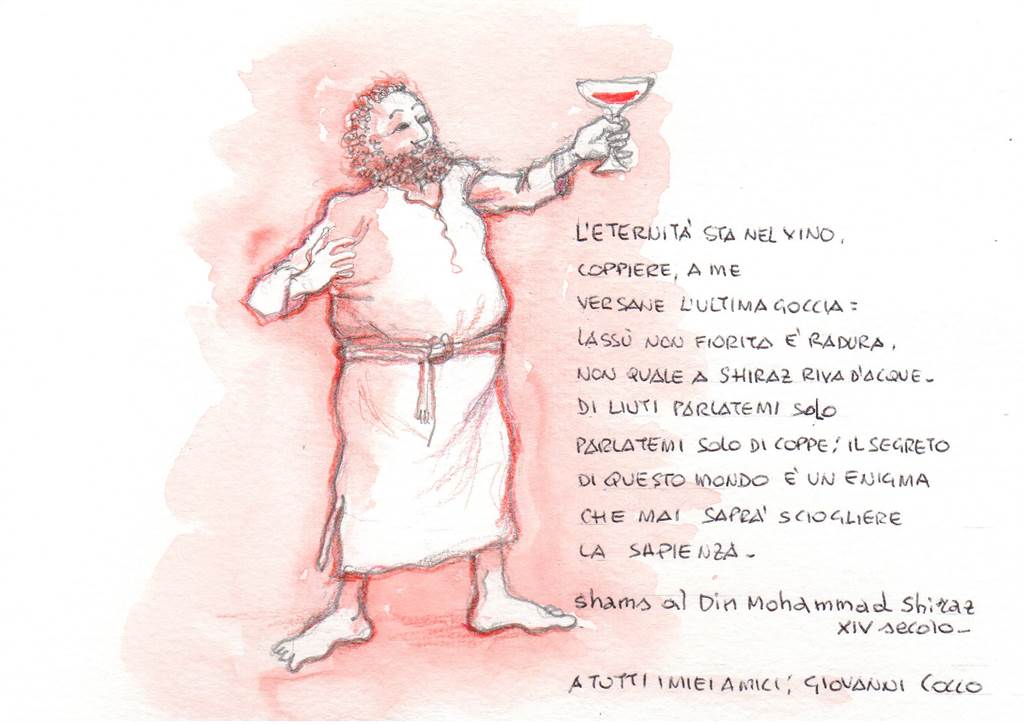 L'ETERNITA' STA NEL VINO,
COPPIERE, A ME
VERSANE L'ULTIMA GOCCIA:
LASSÙ NON FIORITA È RADURA,
NON QUALE A SHIRAZ RIVA D'ACQUE.
DI LIUTI PARLATEMI SOLO
PARLATEMI SOLO DI COPPE; IL SEGRETO
DI QUESTO MONDO È UN ENIGMA
CHE MAI SAPRA' SCIOGLIERE
LA SAPIENZA.
Shams al Din Mohammad Shiraz
XIV secolo
A TUTTI I MIEI AMICI; GIOVANNI COCCO